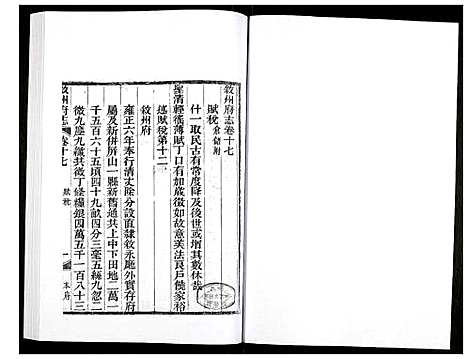 敘州府志卷十七
賦稅 倉儲附
什一取民古有常度降及後世或增其數休哉
聖清輕徭薄賦丁口有加歲徵如故意美法良戶餼家裕
述賦稅第十二
敘州府
雍正六年奉行清丈除分設直隸敘永廳外實存府
屬及新併屏山一縣新舊通共上中下田地二萬一
千五百六十五頃四十九畝四分三毫五絲九忽二
微九塵九纖共徵丁條糧銀四萬五千一百八十三
敘州府志
卷十七
賦稅
一
本府